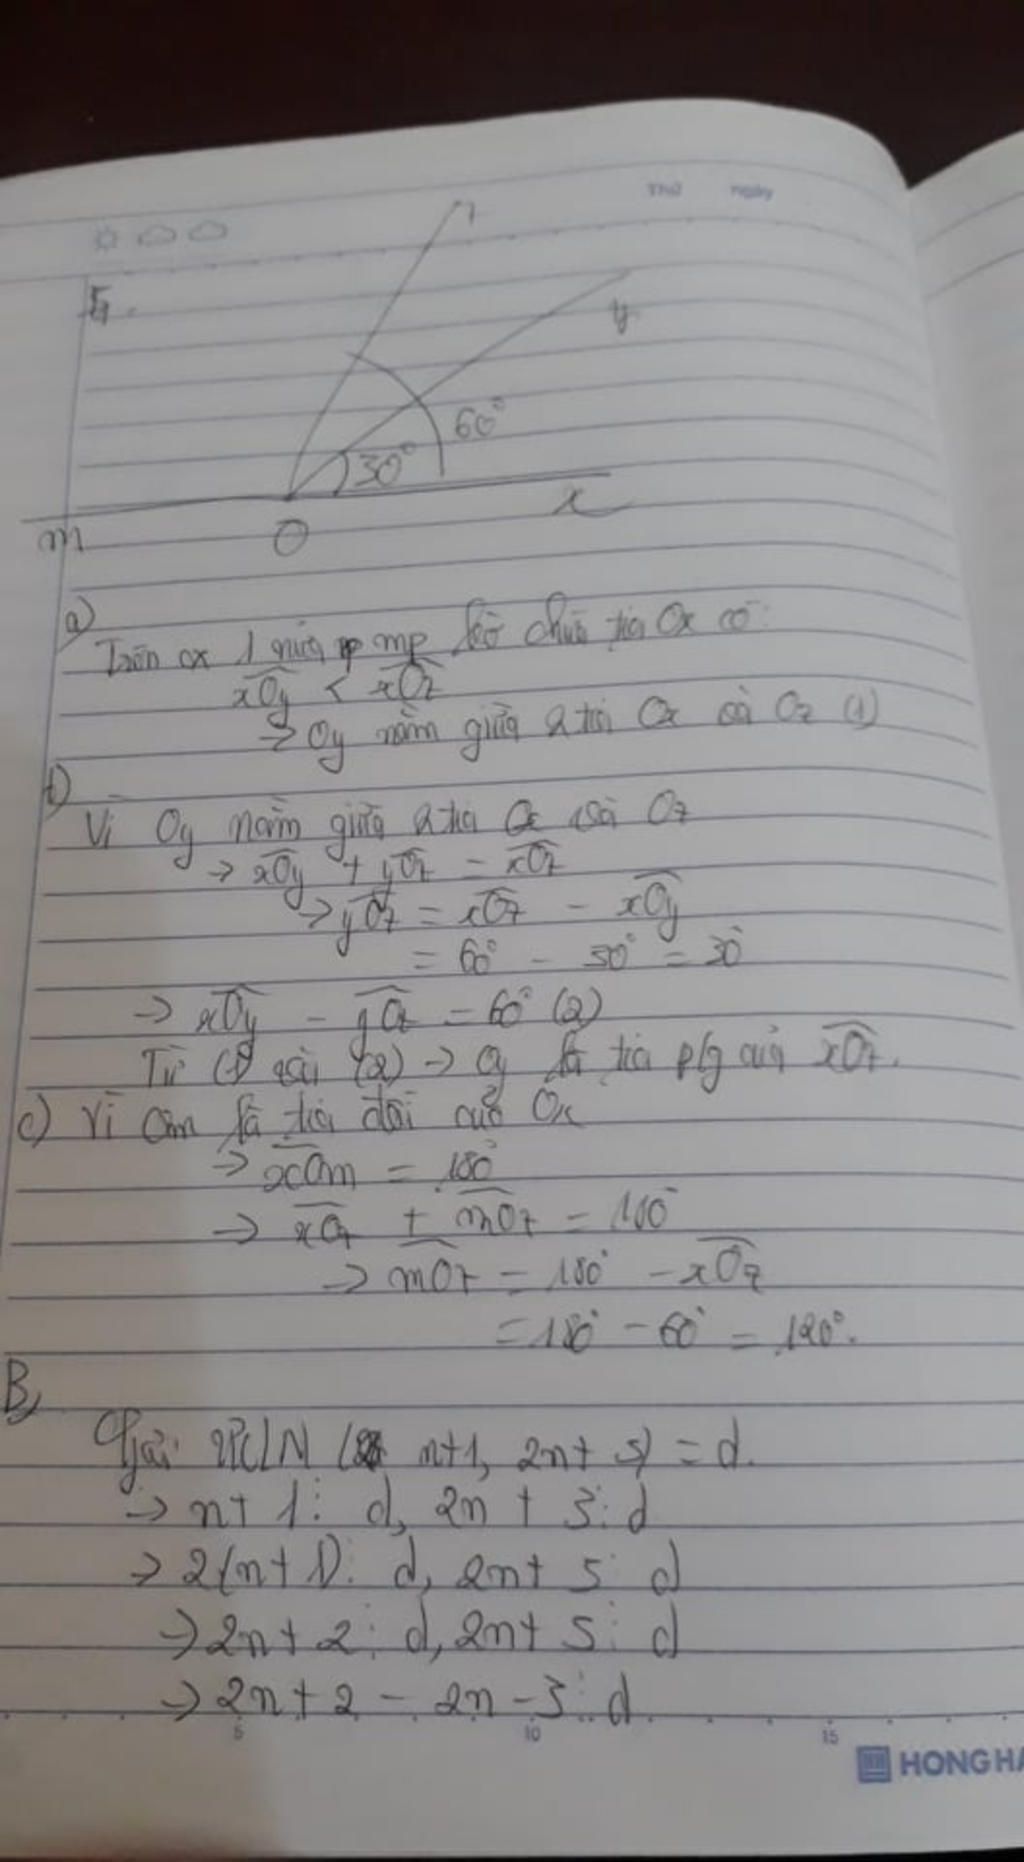 Thứ ngày
y
60°
30°
m
O
x
a)
Trên 1 nửa mp bờ chứa tia Ox có:
xOy < xOz
→ Oy nằm giữa 2 tia Ox và Oz (1)
b)
Vì Oy nằm giữa 2 tia Ox và Oz
→ xOy + yOz = xOz
→ yOz = xOz - xOy
= 60° - 30° = 30°
→ xOy - yOz = 60° (2)
Từ (1) và (2) → Oy là tia p/g của xOz.
c) Vì Om là tia đối của Ox
→ xOm = 180°
→ xOz + mOz = 180°
→ mOz = 180° - xOz
= 180° - 60° = 120°.
B,
Gọi ƯCLN ( n+1, 2n+ 3) = d.
→ n+ 1 ⋮ d, 2n + 3 ⋮ d
→ 2(n+1) ⋮ d, 2n+ 3 ⋮ d
→ 2n+ 2 ⋮ d, 2n+ 3 ⋮ d
→ 2n+2 - 2n -3 ⋮ d
5 10 15
HONG HA